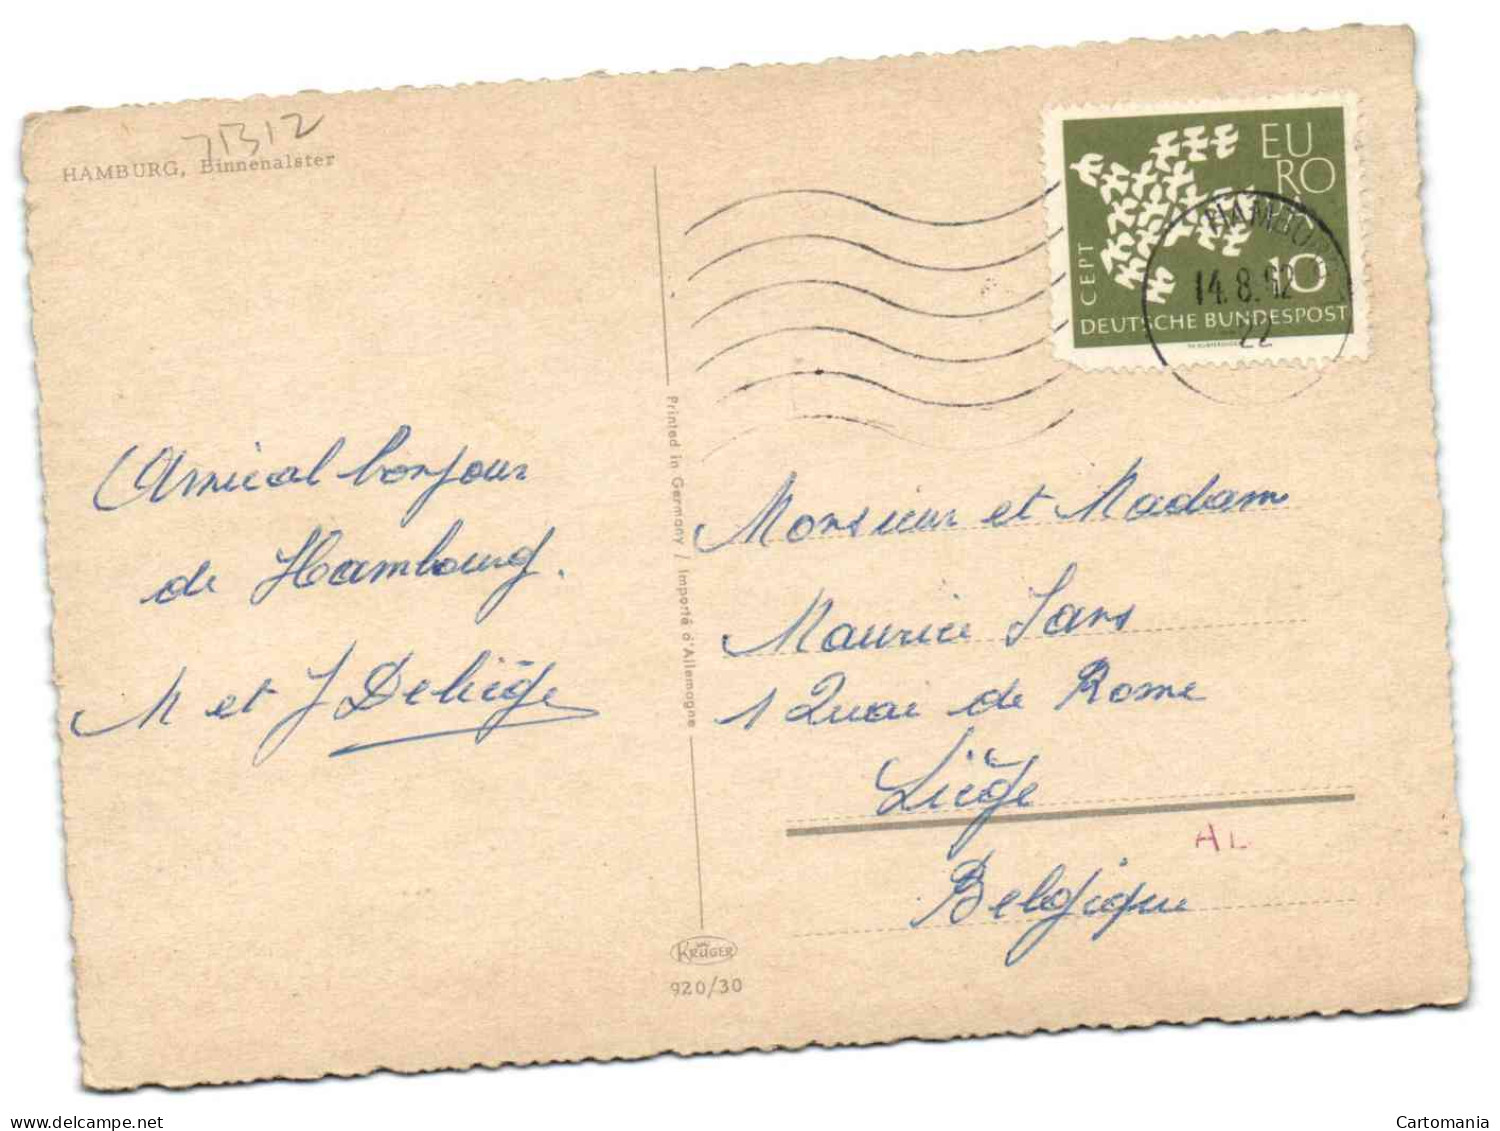 71312
HAMBURG, Binnenalster
EU
RO
PA
CEPT
10
DEUTSCHE BUNDESPOST
HAMBURG
14.8.
22
Printed in Germany / Importé d'Allemagne
Amical bonjour
de Hambourg.
M et J Deliège
Monsieur et Madam
Maurice Sars
1 Quai de Rome
Liège
AL
Belgique
KRÜGER
920/30
Cartomania